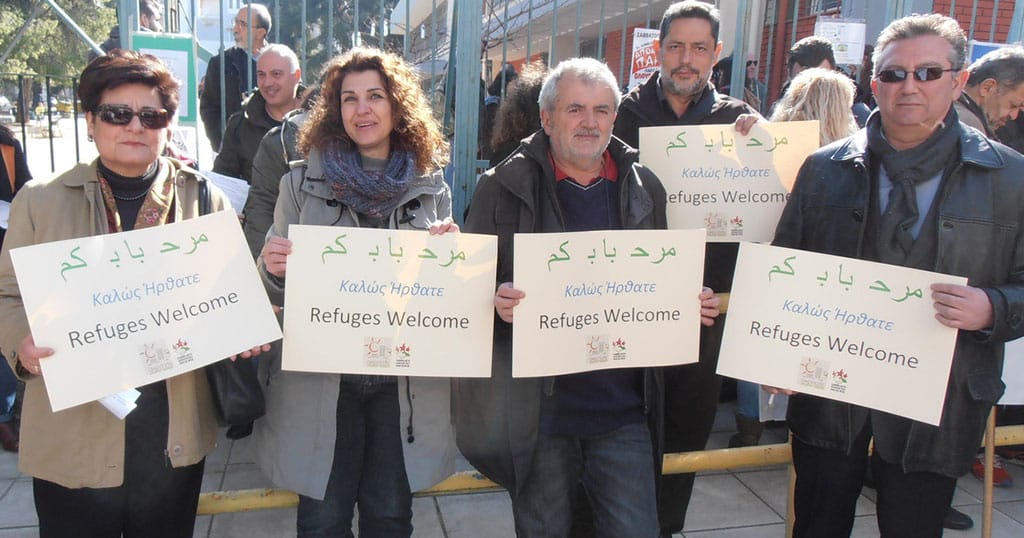 ΣΑΒΒΑΤΟ
مرحـ بابـ كم
Καλώς Ήρθατε
Refuges Welcome
مرحـ بابـ كم
Καλώς Ήρθατε
Refuges Welcome
مرحـ بابـ كم
Καλώς Ήρθατε
Refuges Welcome
مرحـ بابـ كم
Καλώς Ήρθατε
Refuges Welcome
مرحـ بابـ كم
Καλώς Ήρθατε
Refuges Welcome